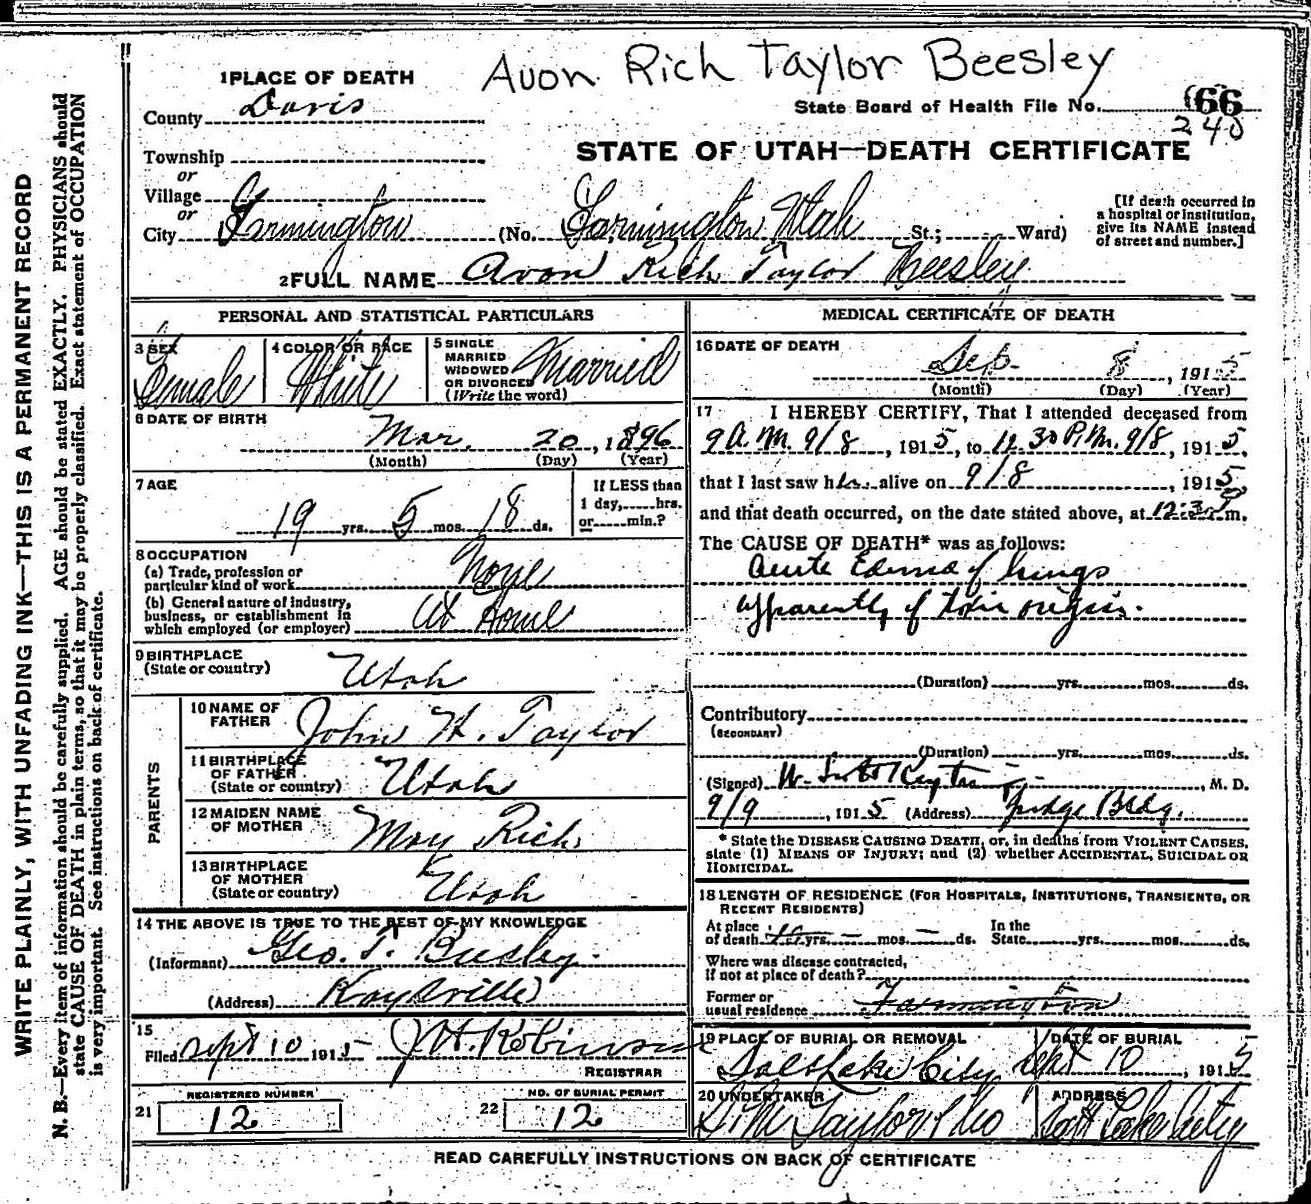 Avon Rich Taylor Beesley
1 PLACE OF DEATH
County Davis
State Board of Health File No. 66
240
Township
or
Village
or
City Farmington
STATE OF UTAH—DEATH CERTIFICATE
(No. Farmington Utah St.; Ward)
[If death occurred in
a hospital or institution,
give its NAME instead
of street and number.]
2 FULL NAME Avon Rich Taylor Beesley
WRITE PLAINLY, WITH UNFADING INK—THIS IS A PERMANENT RECORD
N. B.—Every item of information should be carefully supplied. AGE should be stated EXACTLY. PHYSICIANS should
state CAUSE OF DEATH in plain terms, so that it may be properly classified. Exact statement of OCCUPATION
is very important. See instructions on back of certificate.
PERSONAL AND STATISTICAL PARTICULARS
3 SEX
Female
4 COLOR OR RACE
White
5 SINGLE
MARRIED
WIDOWED
OR DIVORCED
(Write the word)
Married
6 DATE OF BIRTH
Mar. 20, 1896
(Month) (Day) (Year)
7 AGE
19 yrs. 5 mos. 18 ds.
If LESS than
1 day, hrs.
or min.?
8 OCCUPATION
(a) Trade, profession or
particular kind of work None
(b) General nature of industry,
business, or establishment in
which employed (or employer) At Home
9 BIRTHPLACE
(State or country) Utah
PARENTS
10 NAME OF
FATHER John H. Taylor
11 BIRTHPLACE
OF FATHER
(State or country) Utah
12 MAIDEN NAME
OF MOTHER May Rich
13 BIRTHPLACE
OF MOTHER
(State or country) Utah
14 THE ABOVE IS TRUE TO THE BEST OF MY KNOWLEDGE
(Informant) Geo. T. Beesley
(Address) Kaysville
15
Filed Sept 10 1915 J H. Robinson
REGISTRAR
21 REGISTERED NUMBER
12
22 NO. OF BURIAL PERMIT
12
MEDICAL CERTIFICATE OF DEATH
16 DATE OF DEATH
Sep. 8, 1915
(Month) (Day) (Year)
17 I HEREBY CERTIFY, That I attended deceased from
9 A.M. 9/8, 1915, to 12.30 P.M. 9/8, 1915,
that I last saw h alive on 9/8, 1915
and that death occurred, on the date stated above, at 12:30 m.
The CAUSE OF DEATH* was as follows:
Acute Edema of lungs
apparently of toxic origin.
(Duration) yrs. mos. ds.
Contributory
(SECONDARY)
(Duration) yrs. mos. ds.
(Signed) W. , M. D.
9/9, 1915 (Address) Judge Bldg.
* State the DISEASE CAUSING DEATH, or, in deaths from VIOLENT CAUSES,
state (1) MEANS OF INJURY; and (2) whether ACCIDENTAL, SUICIDAL OR
HOMICIDAL.
18 LENGTH OF RESIDENCE (FOR HOSPITALS, INSTITUTIONS, TRANSIENTS, OR
RECENT RESIDENTS)
At place
of death yrs. — mos. — ds.
In the
State yrs. mos. ds.
Where was disease contracted,
If not at place of death?
Former or
usual residence Farmington
19 PLACE OF BURIAL OR REMOVAL
Salt Lake City
DATE OF BURIAL
Sept 10, 1915
20 UNDERTAKER
S. M. Taylor & Co
ADDRESS
Salt Lake City
READ CAREFULLY INSTRUCTIONS ON BACK OF CERTIFICATE